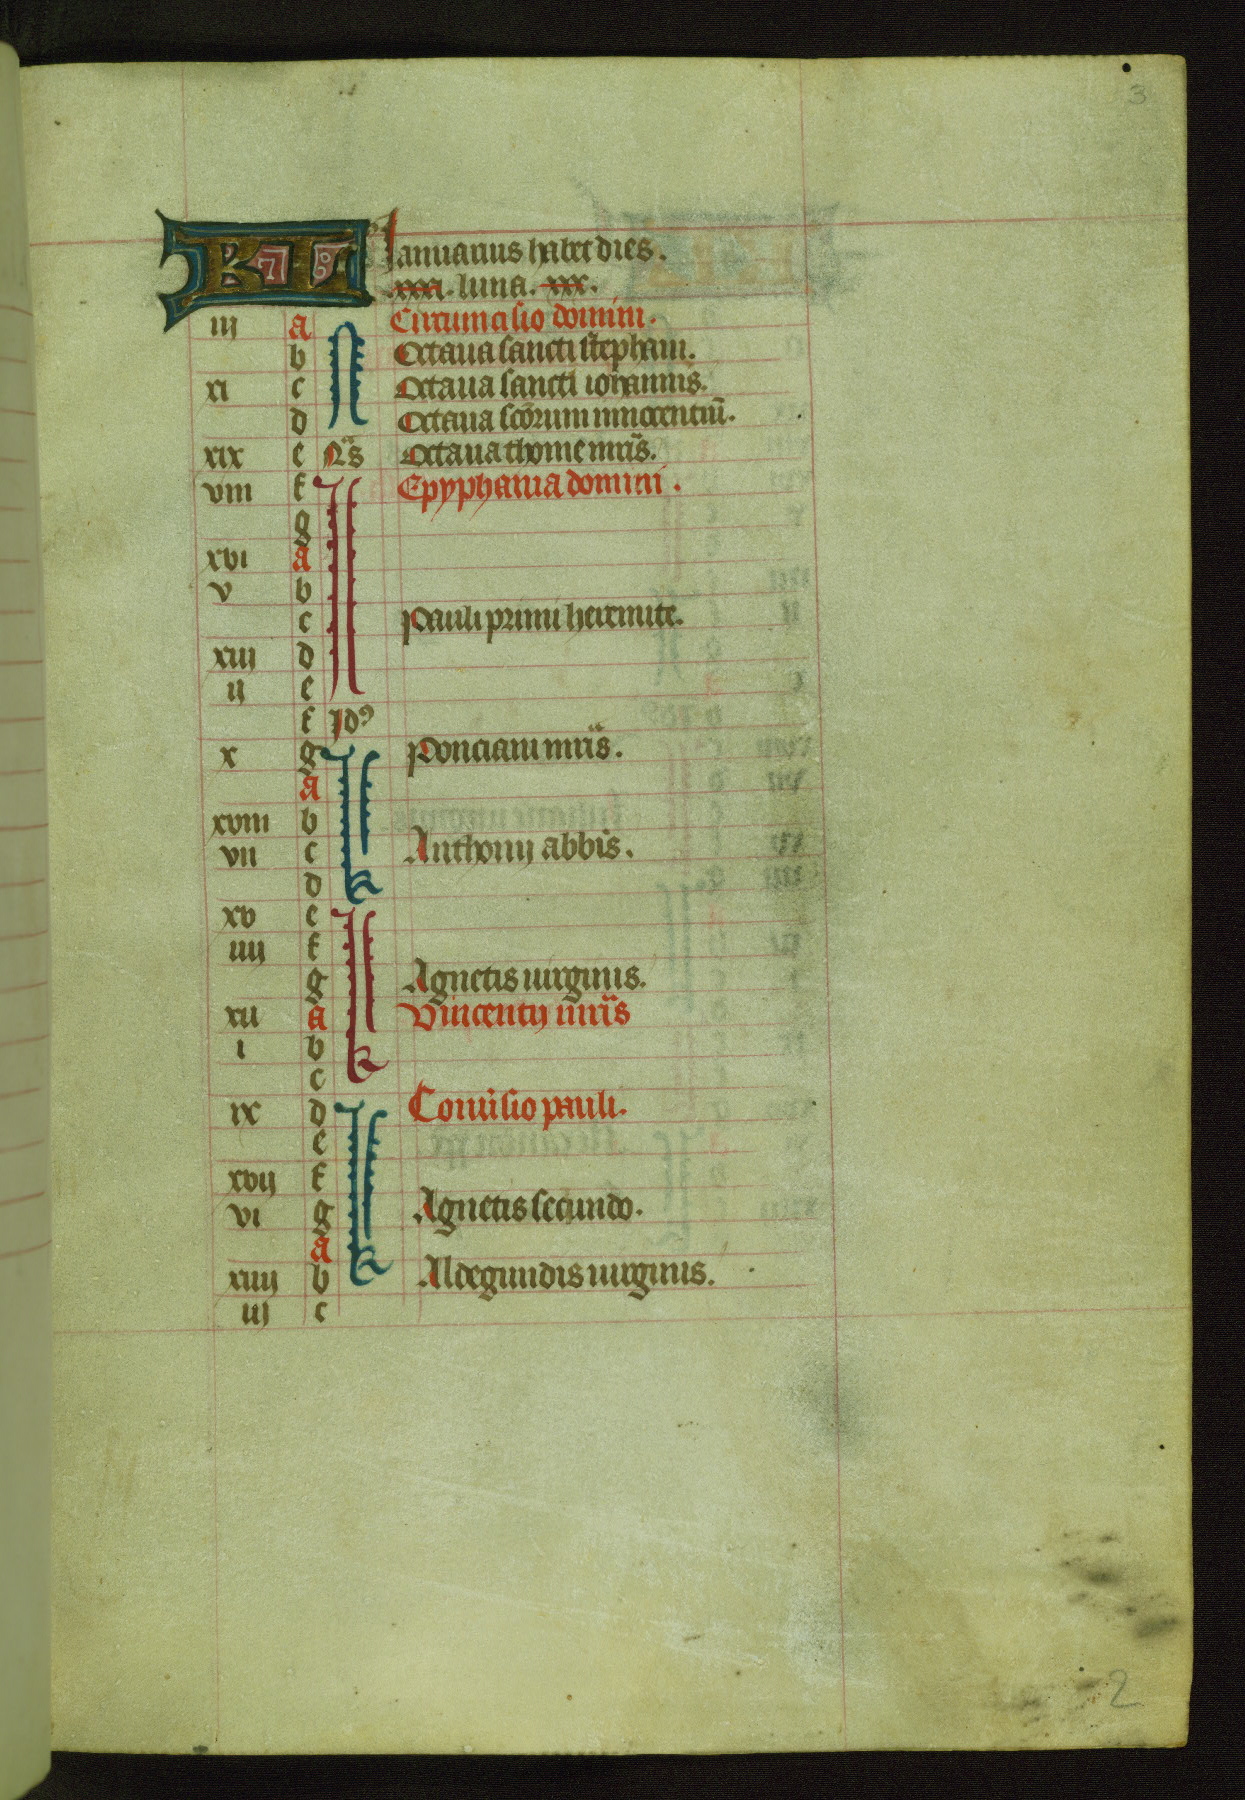 3
KL Januarius habet dies.
xxxi. luna. xxx.
iij a Circumcisio domini.
b N Octaua sancti stephani.
xi c Octaua sancti iohannis.
d Octaua scõrum innocentiũ.
xix e Nãs Octaua thome mr̃is.
viii f Id Epyphania domini.
g
xvi a
v b
c Pauli primi heremite.
xiij d
ij e
f Jdꝰ
x g Ponciani mr̃is.
a
xviii b
vii c Anthonij abbis.
d kl
xv e
iiij f
g Agnetis uirginis.
xii a Vincentij mr̃is
i b
c kl
ix d Conũsio pauli.
e
xvij f
vi g Agnetis secundo.
a
xiiij b kl Aldegundis uirginis.
iij c
2